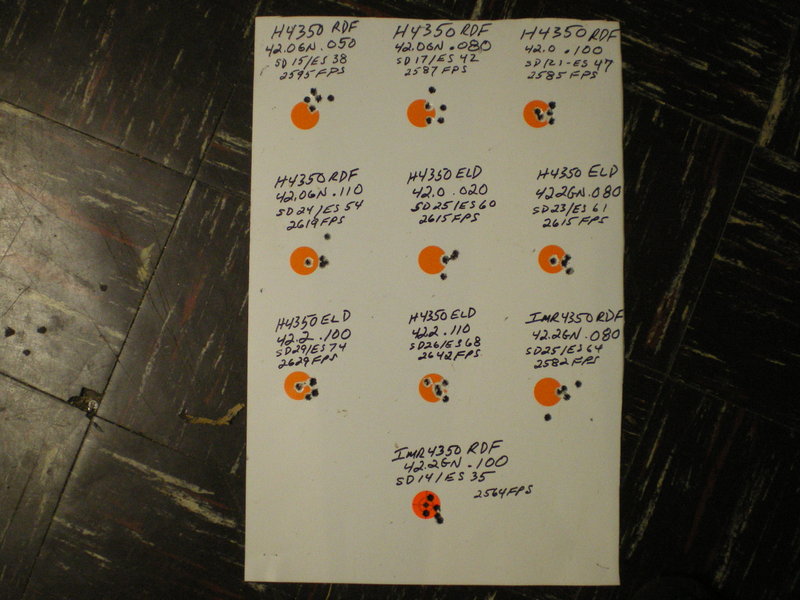 H4350 RDF
42.0GN .050
SD 15/ES 38
2595 FPS
H4350 RDF
42.0GN .080
SD 17/ES 42
2587 FPS
H4350 RDF
42.0 .100
SD 21-ES 47
2585 FPS
H4350 RDF
42.0GN .110
SD 24/ES 54
2619 FPS
H4350 ELD
42.0 .020
SD 25/ES 60
2615 FPS
H4350 ELD
42.2GN .080
SD 23/ES 61
2615 FPS
H4350 ELD
42.2 .100
SD 29/ES 74
2629 FPS
H4350 ELD
42.2 .110
SD 26/ES 68
2642 FPS
IMR4350 RDF
42.2GN .080
SD 25/ES 64
2582 FPS
IMR4350 RDF
42.2GN .100
SD 14/ES 35
2564 FPS